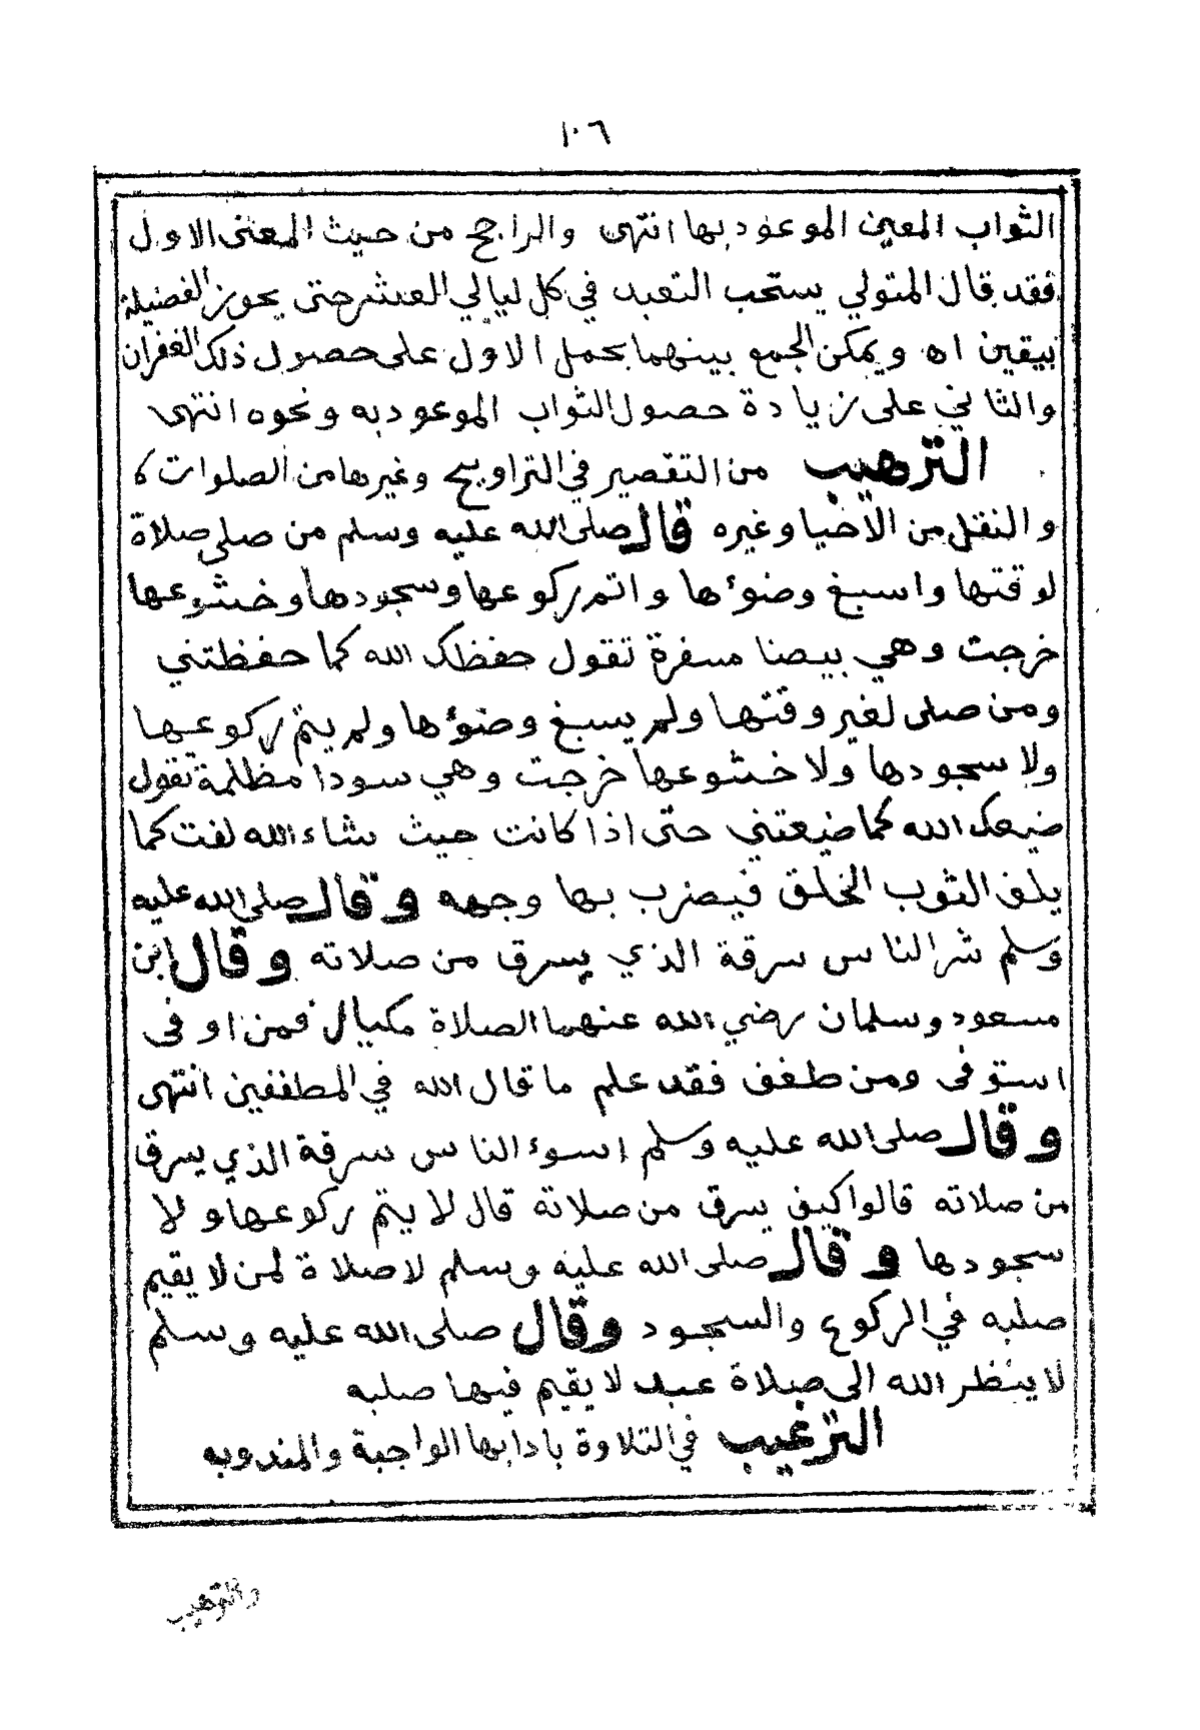 ١٠٦
الثواب المعين الموعود بها انتهى والراجح من حيث المعنى الاول
فقد قال المتولي يستحب التعبد في كل ليالي العشر حتى يحوز الفضيلة
بيقين اه ويمكن الجمع بينهما بحمل الاول على حصول ذلك الغفران
والثاني على زيادة حصول الثواب الموعود به ونحوه انتهى
الترهيب من التقصير في التراويح وغيرها من الصلوات
والنقل من الأخيا وغيره قال صلى الله عليه وسلم من صلى صلاة
لوقتها واسبغ وضوءها واتم ركوعها وسجودها وخشوعها
خرجت وهي بيضا مسفرة تقول حفظك الله كما حفظتني
ومن صلى لغير وقتها ولم يسبغ وضوءها ولم يتم ركوعها
ولا سجودها ولا خشوعها خرجت وهي سودا مظلمة تقول
ضيعك الله كما ضيعتني حتى اذا كانت حيث شاء الله لفت كما
يلف الثوب الخلق فيضرب بها وجهه وقال صلى الله عليه
وسلم شر الناس سرقة الذي يسرق من صلاته وقال ابن
مسعود وسلمان رضي الله عنهما الصلاة مكيال فمن اوفى
استوفى ومن طفف فقد علم ما قال الله في المطففين انتهى
وقال صلى الله عليه وسلم اسوء الناس سرقة الذي يسرق
من صلاته قالوا كيف يسرق من صلاته قال لا يتم ركوعها ولا
سجودها وقال صلى الله عليه وسلم لا صلاة لمن لا يقيم
صلبه في الركوع والسجود وقال صلى الله عليه وسلم
لا ينظر الله الى صلاة عبد لا يقيم فيها صلبه
الترغيب في التلاوة بادابها الواجبة والمندوبه
والترهيب